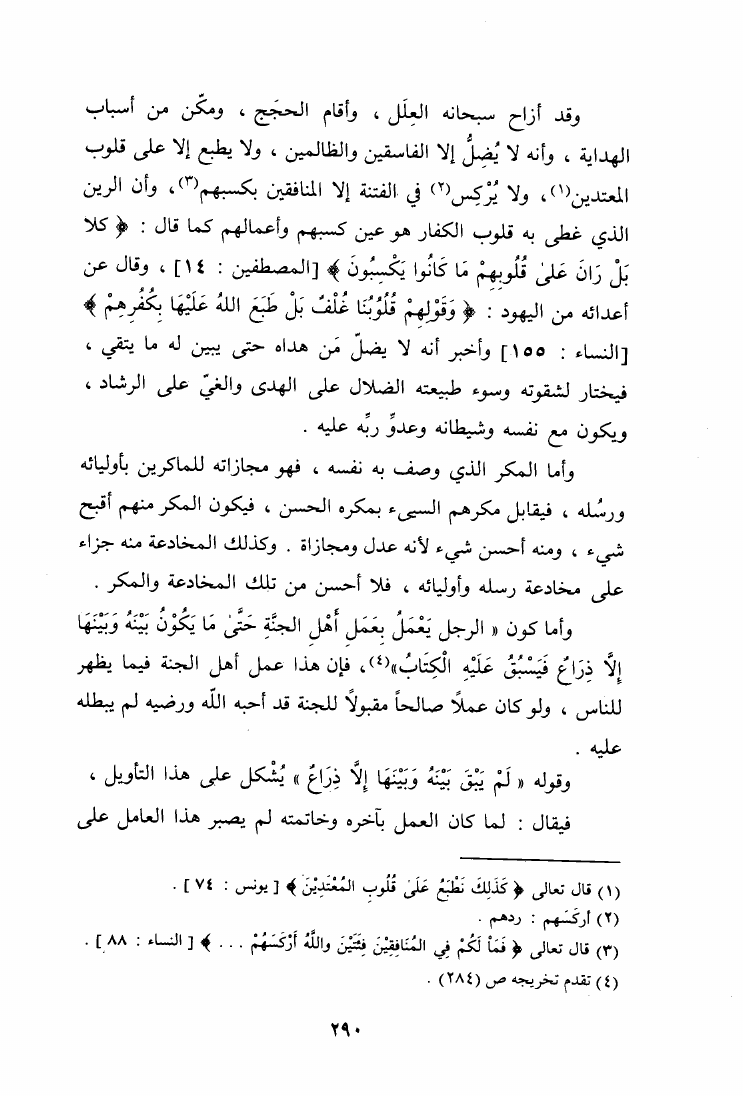 وقد أزاح سبحانه العِلَل ، وأقام الحجَج ، ومكّن من أسباب
الهداية ، وأنه لا يُضِلُّ إلا الفاسقين والظالمين ، ولا يطبع إلا على قلوب
المعتدين(١)، ولا يُرْكِس(٢) في الفتنة إلا المنافقين بكسبهم(٣)، وأن الرين
الذي غطى به قلوب الكفار هو عين كسبهم وأعمالهم كما قال : ﴿ كلا
بَلْ رَانَ عَلىٰ قُلُوبِهِمْ مَا كَانُوا يَكْسِبُونَ ﴾ [المصطفين : ١٤] ، وقال عن
أعدائه من اليهود : ﴿ وَقَوْلِهِمْ قُلُوبُنَا غُلْفٌ بَلْ طَبَعَ اللهُ عَلَيْهَا بِكُفُرِهِمْ ﴾
[النساء : ١٥٥] وأخبر أنه لا يضلّ مَن هداه حتى يبين له ما يتقي ،
فيختار لشقوته وسوء طبيعته الضلال على الهدى والغيّ على الرشاد ،
ويكون مع نفسه وشيطانه وعدوِّ ربِّه عليه .
وأما المكر الذي وصف به نفسه ، فهو مجازاته للماكرين بأوليائه
ورسُله ، فيقابل مكرهم السيىء بمكره الحسن ، فيكون المكر منهم أقبح
شيء ، ومنه أحسن شيء لأنه عدل ومجازاة . وكذلك المخادعة منه جزاء
على مخادعة رسله وأوليائه ، فلا أحسن من تلك المخادعة والمكر .
وأما كون « الرجل يَعْمَلُ بِعَمَلِ أَهْلِ الجنَّةِ حَتَّىٰ مَا يَكُوْنُ بَيْنَهُ وَبَيْنَهَا
إِلَّا ذِرَاعٌ فَيَسْبُقُ عَلَيْهِ الْكِتَابُ»(٤)، فإن هذا عمل أهل الجنة فيما يظهر
للناس ، ولو كان عملًا صالحاً مقبولًا للجنة قد أحبه الله ورضيه لم يبطله
عليه .
وقوله « لَمْ يَبْقَ بَيْنَهُ وَبَيْنَهَا إِلَّا ذِرَاعٌ » يُشْكل على هذا التأويل ،
فيقال : لما كان العمل بآخره وخاتمته لم يصبر هذا العامل على
(١) قال تعالى ﴿ كَذَلِكَ نَطْبَعُ عَلَىٰ قُلُوبِ المُعْتَدِيْنَ ﴾ [ يونس : ٧٤ ] .
(٢) أركَسهم : ردهم .
(٣) قال تعالى ﴿ فَمَاْ لَكُمْ فِي المُنَافِقِيْنَ فِئَتَيْنَ واللَّهُ أَرْكَسَهُمْ ... ﴾ [ النساء : ٨٨ ] .
(٤) تقدم تخريجه ص (٢٨٤) .
٢٩٠